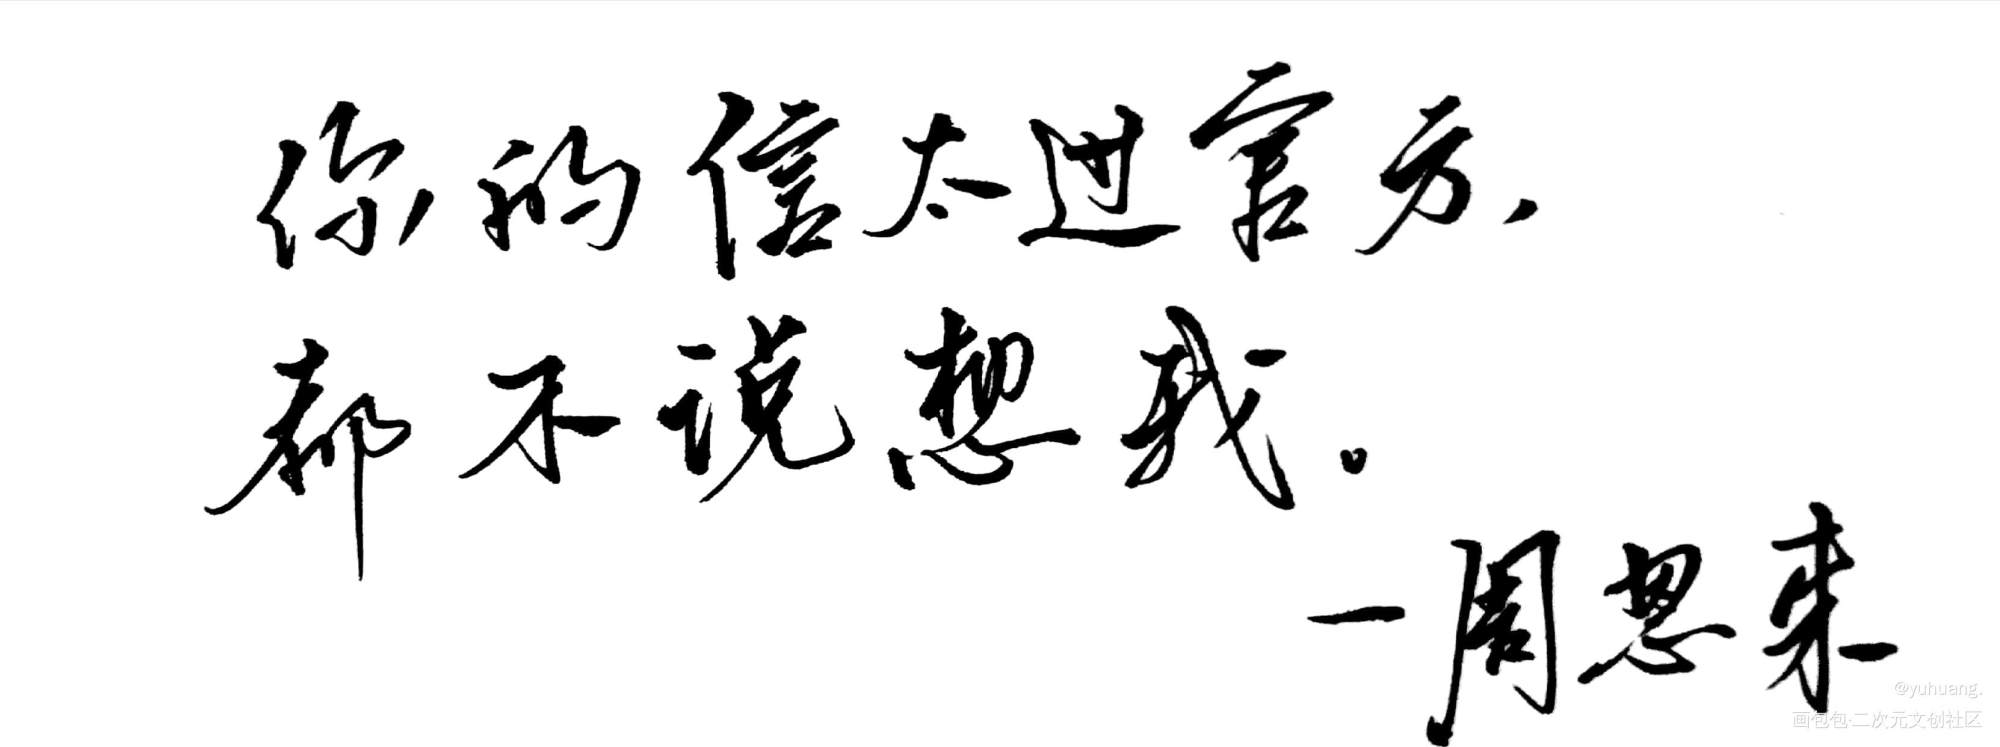 你的信太过官方，
都不说想我。
—周恩来
@yuhuang.
画包包·二次元文创社区